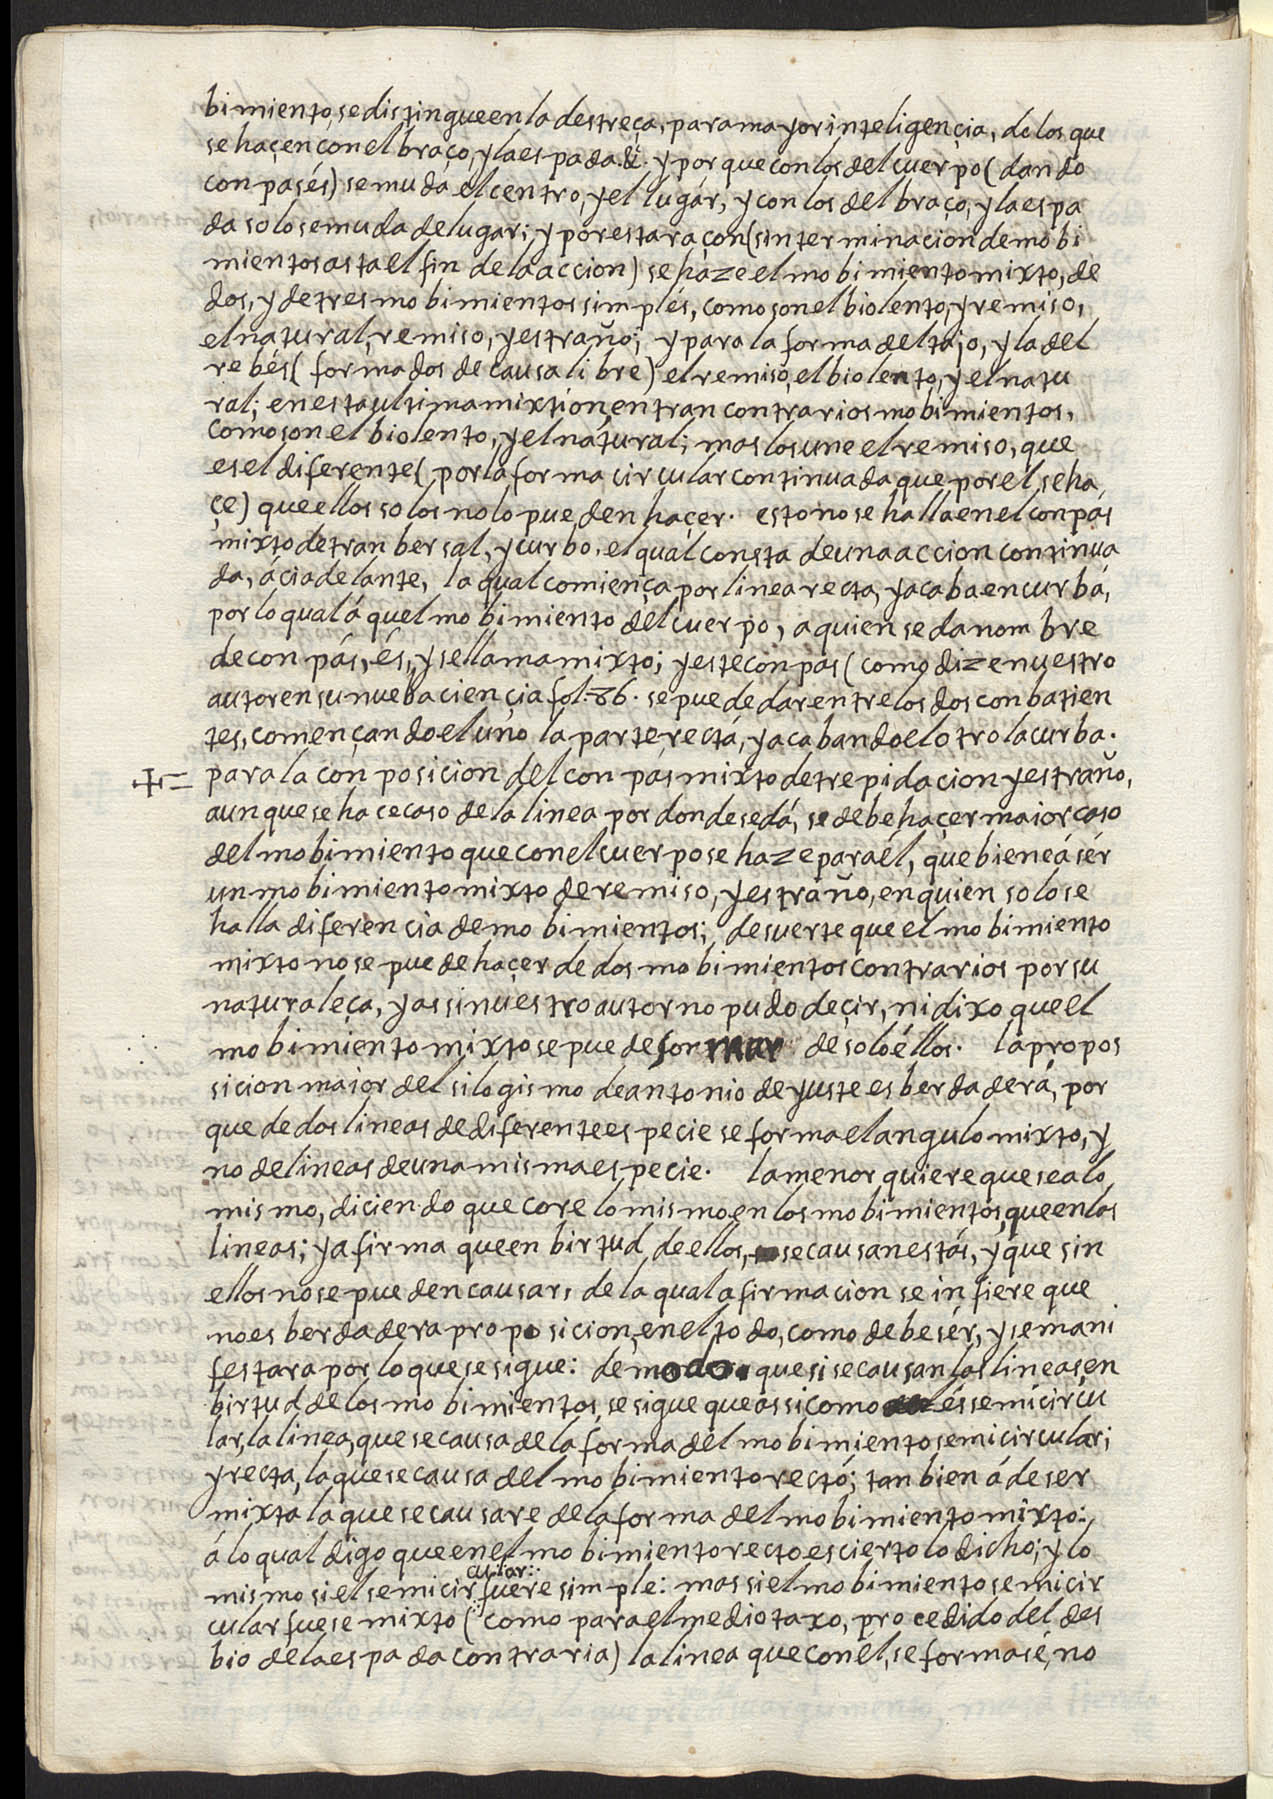 bimiento, se distingue en la destreça, para mayor inteligençia, de los que
se haçen con el braço, y la espada. &. y porque con los del cuerpo (dando
conpasés) se muda el centro, y el lugár, y con los del braço, y la espa
da solo se muda de lugar; y por esta raçon (sin terminacion de mobi
mientos asta el fin de la accion) se háze el mobimiento mixto, de
dos, y de tres mobimientos simplés, como son el biolento, y remiso,
el natural, remiso, y estraño; y para la forma del tajo, y la del
rebés (formados de causa libre) el remiso, el biolento, y el natu
ral; en esta ultima mixtion entran contrarios mobimientos,
como son el biolento, y el nátural; mas los une el remiso, que
es el diferente (por la forma circular continuada que por él se ha
çe) que ellos solos no lo pueden haçer. esto no se halla en el conpas
mixto de tranbersal, y curbo, el quál consta de una accion continua
da, ácia delante, la qual comiença por linea recta, y acaba en curbá,
por lo qual áquel mobimiento del cuerpo, a quien se da nombre
de conpás, és, y se llama mixto; y este conpás (como dize nuestro
autor en su nueba ciençia fol. 86. se puede dar entre los dos conbatien
tes, començando el uno la parte rectá, y acabando el otro la curba.
✠= para la conposicion del conpas mixto de trepidacion y estraño,
aunque se hace caso de la linea por donde se dá, se debe haçer maior caso
del mobimiento que con el cuerpo se haze para él, que biene á sér
un mobimiento mixto de remiso, y estraño, en quien solo se
halla diferencia de mobimientos; de suerte que el mobimiento
mixto no se puede haçer de dos mobimientos contrarios por su
naturaleça, y assi nuestro autor no pudo deçir, ni dixo que el
mobimiento mixto se puede formar de solo éllos. la propos
sicion maior del silogismo de antonio de yuste es berdaderá, por
que de dos lineas de diferente especie se forma el angulo mixto, y
no de lineas de una misma especie. la menor quiere que sea lo
mismo, diciendo que core lo mismo en los mobimientos, que en las
lineas; y afirma que en birtud de ellos, se causan estás, y que sin
ellos no se pueden causar; de la qual afirmacion se infiere que
no es berdadera proposicion, en el todo, como debe sér, y se mani
festara por lo que se sigue: de modo. que si se causan las lineas en
birtud de los mobimientos, se sigue que assi como és semicircu
lar, la linea, que se causa de la forma del mobimiento semicircular;
y recta, la que se causa del mobimiento rectó; tanbien á de ser
mixta la que se causare de la forma del mobimiento mixto:
á lo qual digo que en el mobimiento recto es cierto lo dicho; y lo
mismo si el semicircular: fuere simple: mas si el mobimiento semicir
cular fuese mixto (como para el medio taxo, procedido del des
bio de la espada contraria) la linea que con él, se formasé, no